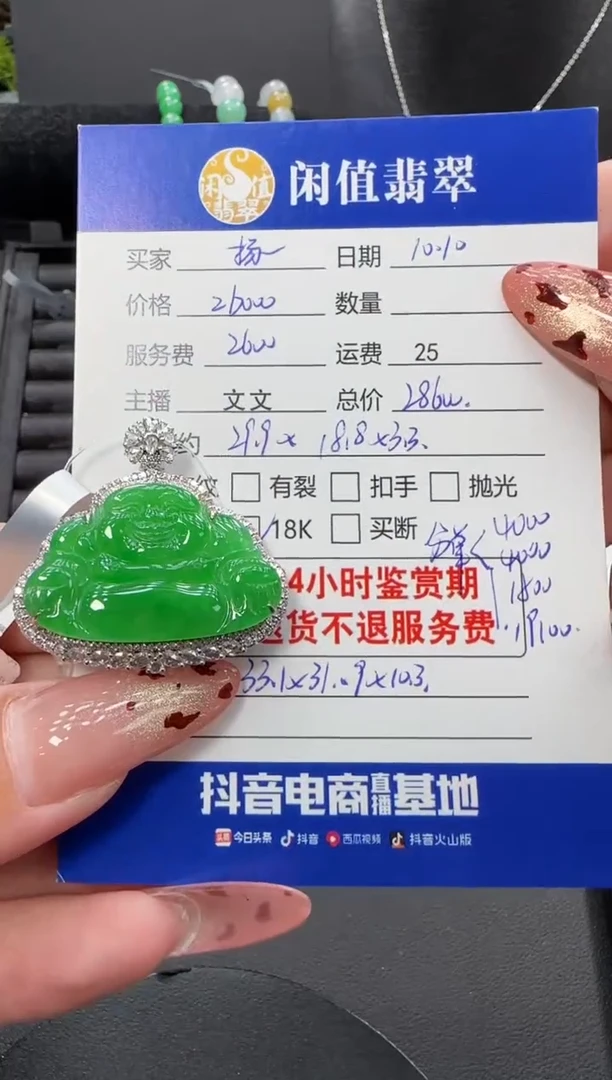 闲值翡翠
闲值翡翠
买家 杨 日期 10.10
价格 26000 数量
服务费 2600 运费 25
主播 文文 总价 28600.
约 29.9 x 18.8 x 3.3.
纹 有裂 扣手 抛光
18K 买断
分单 4000
4000
1500
19100.
4小时鉴赏期
退货不退服务费
33.1 x 31.9 x 10.3.
抖音电商直播基地
头条 今日头条 抖音 西瓜视频 抖音火山版